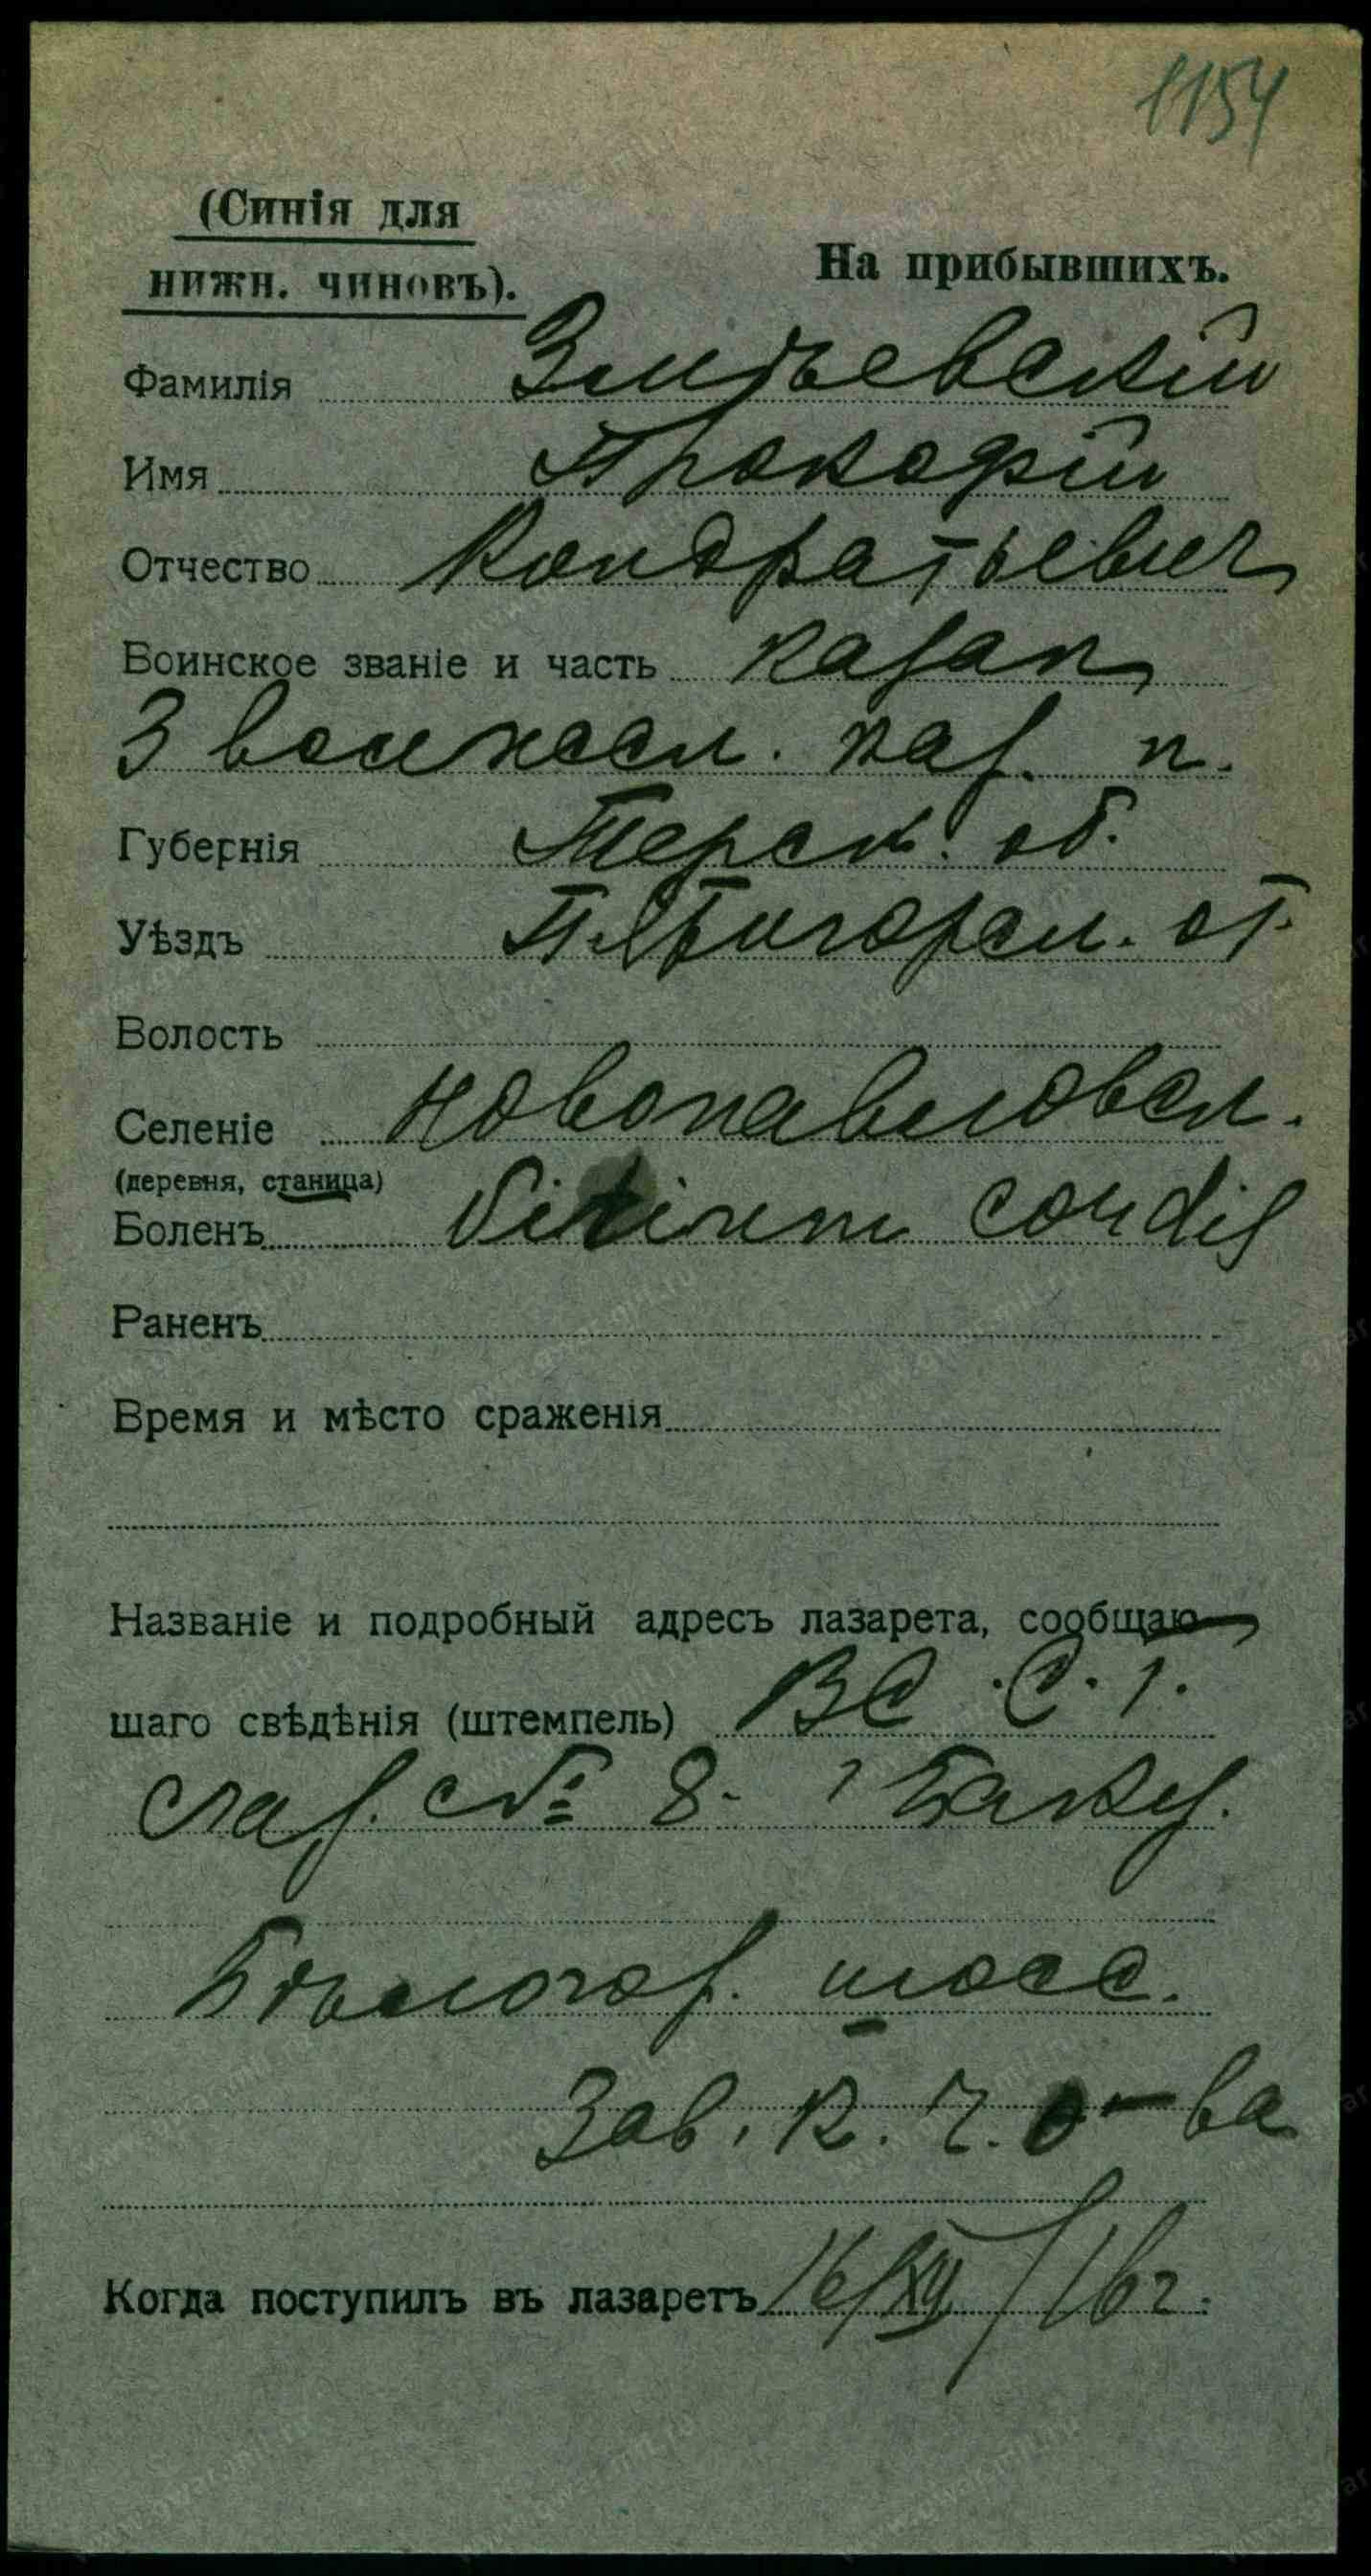 1154
(Синія для
нижн. чиновъ).
На прибывшихъ.
Фамилія Змѣевскій
Имя Прокофій
Отчество Кондратьевич
Воинское званіе и часть казак
3 каз. п.
Губернія Терск. об.
Уѣздъ Пятигорск. от.
Волость
Селеніе Новопавловск.
(деревня, станица)
Боленъ Vitium cordis
Раненъ
Время и мѣсто сраженія
Названіе и подробный адресъ лазарета, сообщаю-
шаго свѣдѣнія (штемпель) ВС.С.Г.
Лаз. № 8. г Баку.
Бѣлогор. шосс.
Зав. К. Ч. о-ва
Когда поступилъ въ лазаретъ 16/XII/16 г.